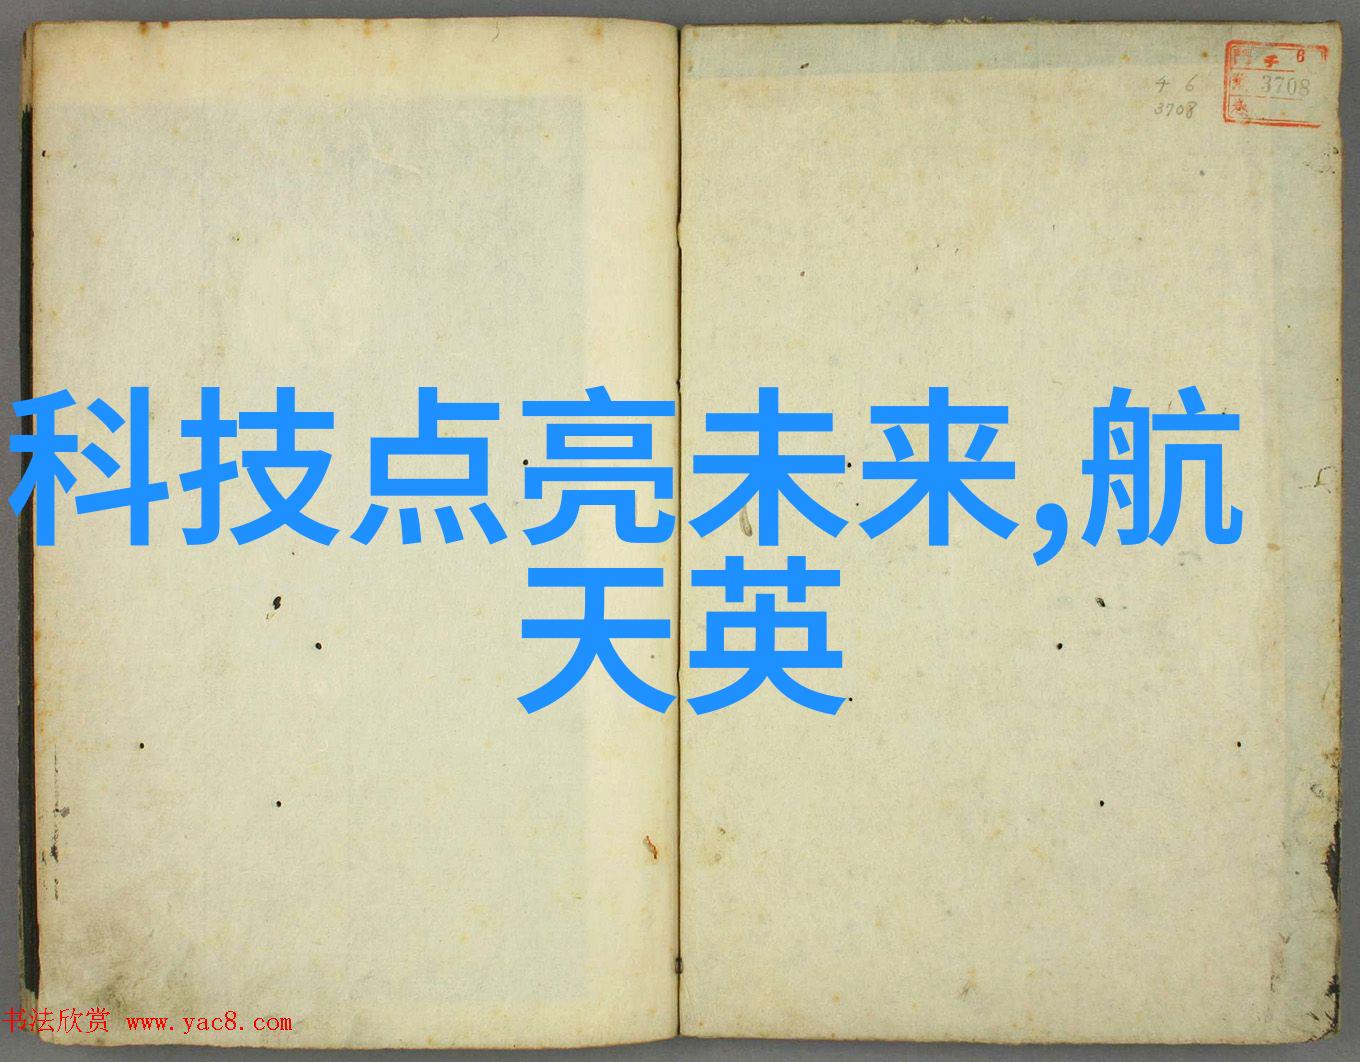 チ 6
3708
チ 6
3708
科技点亮未来,航
天英
书法欣赏 www.yac8.com